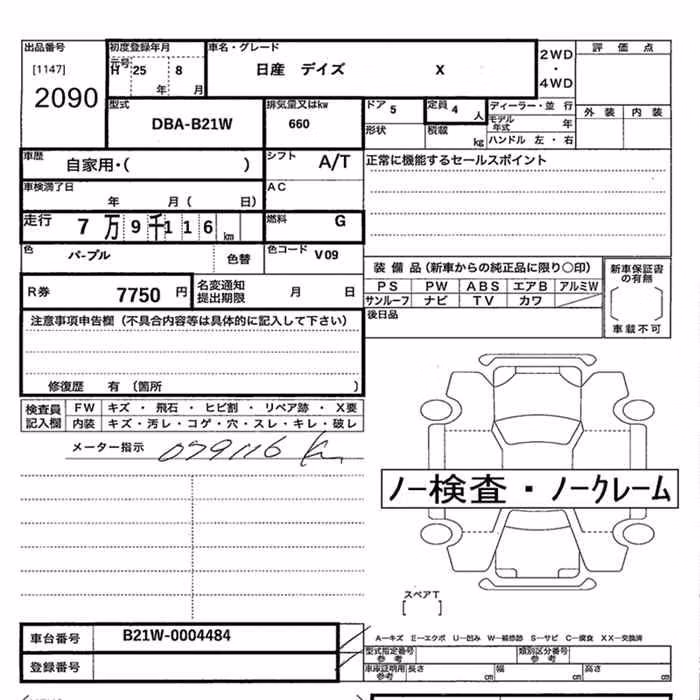 出品番号
[1147]
2090
初度登録年月
元号 H 25 8
年 月
車名・グレード
日産 デイズ X
2WD
・
4WD
評価点
外装 内装
型式
DBA-B21W
排気量又はkw
660
ドア 5
定員 4 人
形状
積載 kg
ディーラー・並行
モデル年式 年
ハンドル 左・右
車歴
自家用・( )
シフト A/T
正常に機能するセールスポイント
車検満了日
年 月( 日)
AC
走行 7万9千116km
燃料 G
色
パープル
色替
色コード V09
R券 7750円
名変通知
提出期限 月 日
装備品(新車からの純正品に限り○印)
PS PW ABS エアB アルミW
サンルーフ ナビ TV カワ
新車保証書
の有無
車載不可
後日品
注意事項申告欄(不具合内容等は具体的に記入して下さい)
修復歴 有 (箇所 )
検査員
記入欄
FW キズ・飛石・ヒビ割・リペア跡・X要
内装 キズ・汚レ・コゲ・穴・スレ・キレ・破レ
メーター指示 079116 Km
ノー検査・ノークレーム
スペアT
[ ]
車台番号 B21W-0004484
登録番号
A―キズ E―エクボ U―凹み W―補修跡 S―サビ C―腐食 XX―交換済
型式指定番号
参考
類別区分番号
参考
車庫証明用
参考
長さ cm 幅 cm 高さ cm